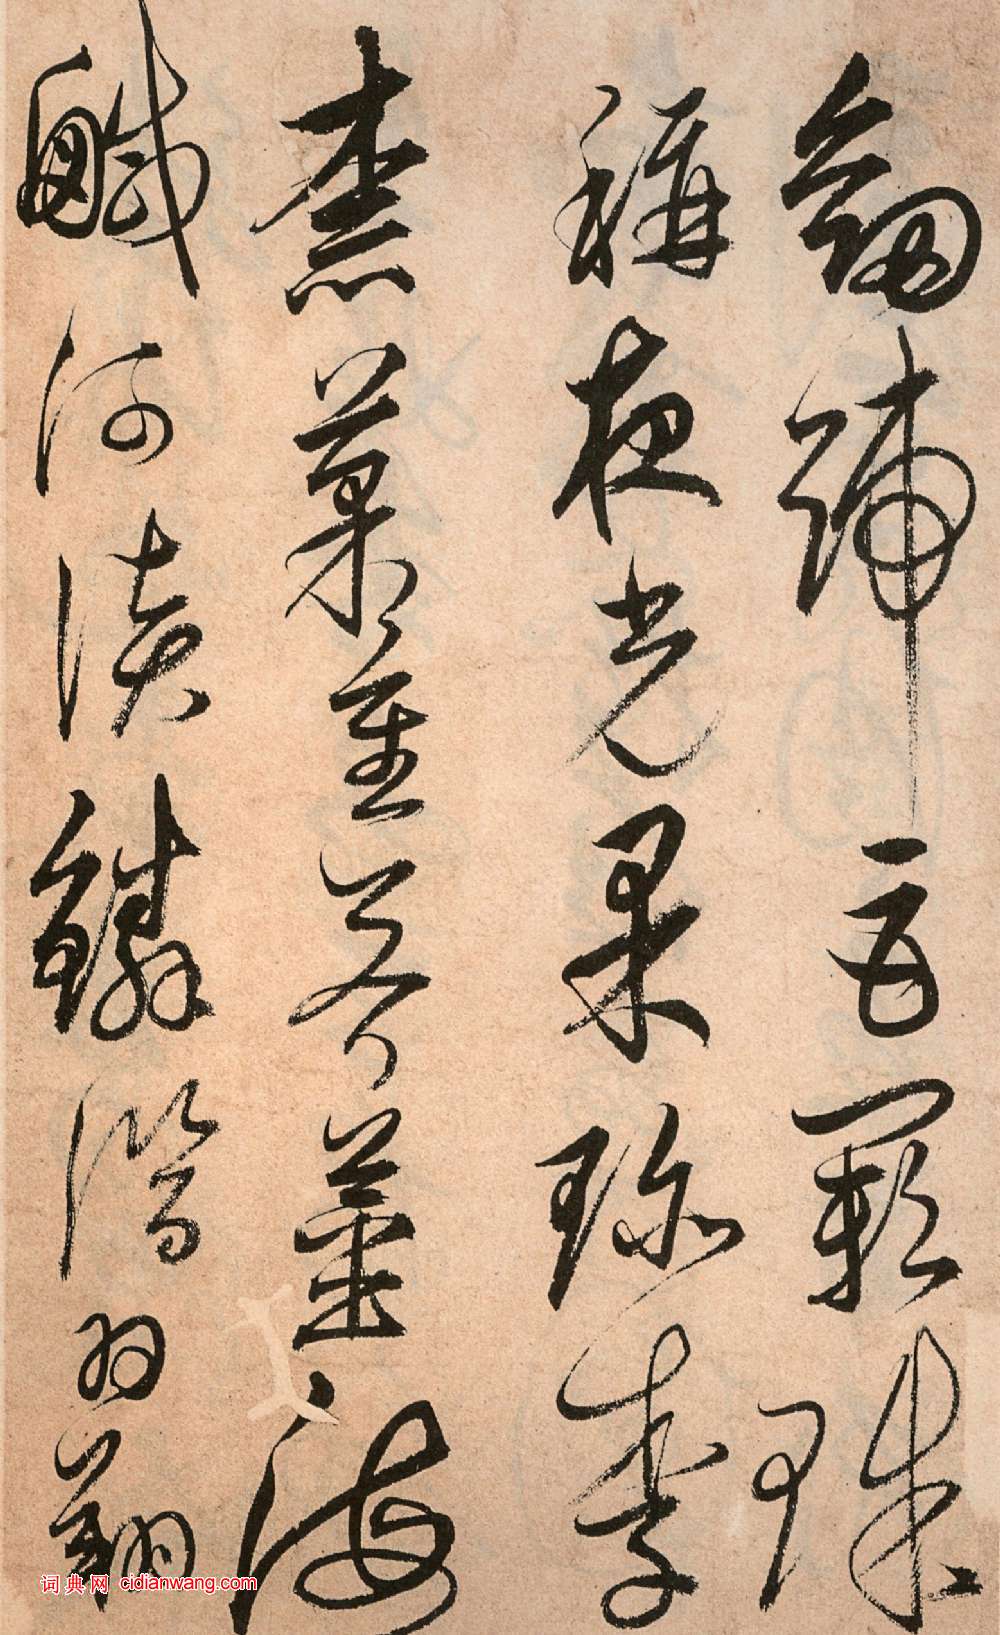 劔號巨闕珠
稱夜光果珍李
柰菜重芥薑海
鹹河淡鱗潛羽翔
词典网 cidianwang.com